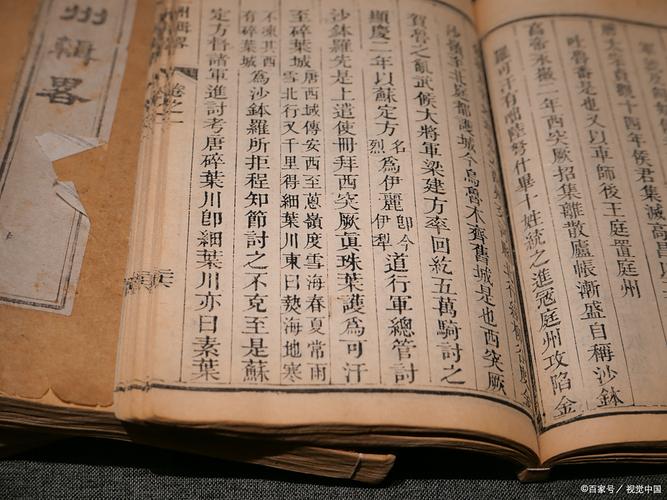 唐太宗貞觀十四年侯君集滅高昌以
吐魯番是也又以車師後王庭置庭州
高帝永徽二年西突厥招集離散廬帳漸盛自稱沙鉢
羅可汗有咄陸弩什畢十姓統之進寇庭州攻陷金
嶺至北庭都護城今烏魯木齊舊城是也西突厥
賀魯之亂武候大將軍梁建方率回紇五萬騎討之
顯慶二年以蘇定方名烈爲伊麗即今伊犁道行軍總管討
沙鉢羅先是上遣使冊拜西突厥眞珠葉護爲可汗
至碎葉城唐西域傳安西至蔥嶺度雪海春夏常雨雪北行又千里得細葉川東曰熱海地寒
不凍其西有碎葉城爲沙鉢羅所拒程知節討之不克至是蘇
定方督諸軍進討考唐碎葉川卽細葉川亦曰素葉
州輯畧
卷之二
州輯畧
©百家号/视觉中国